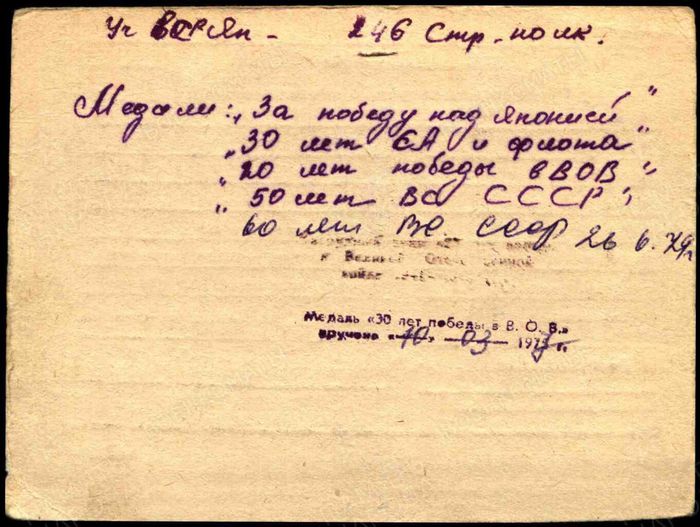 Уч ВСР Яп - 246 Стр. полк.
Медали: „За победу над Японией"
„30 лет СА и флота"
„20 лет победы в ВОВ"
„50 лет ВС СССР"
60 лет ВС СССР 26.6.79г
в Великой Отечественной
Медаль «30 лет победы в В. О. В.»
вручена «10» 03 197 г.